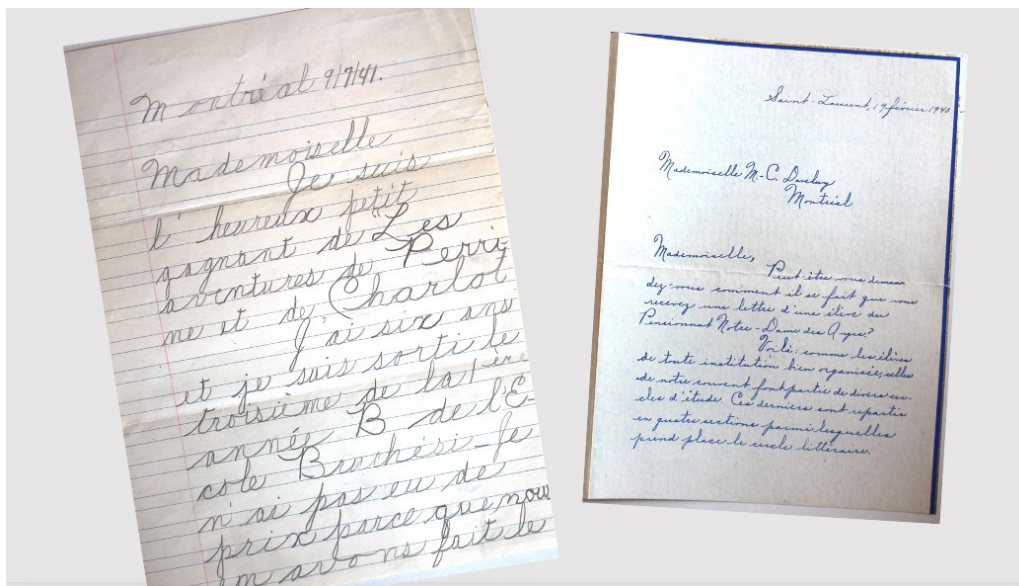 Montréal 9/7/41.
Mademoiselle
Je suis
l'heureux petit
gagnant de "Les
aventures de Perri-
ne et de Charlot
J'ai six ans
et je suis sorti le
troisième de la 1ère
année B de l'É-
cole Bruchési-Je
n'ai pas eu de
prix parce que nous
en avons fait le
Saint-Laurent, 19 février 1940
Mademoiselle M.-C. Daveluy
Montréal
Mademoiselle,
Peut-être vous deman
dez-vous comment il se fait que vous
recevez une lettre d'une élève du
Pensionnat Notre-Dame des Anges?
Voilà: comme les élèves
de toute institution bien organisée, celles
de notre couvent font partie de divers cer-
cles d'étude. Ces derniers sont répartis
en quatre sections parmi lesquelles
prend place le cercle littéraire.